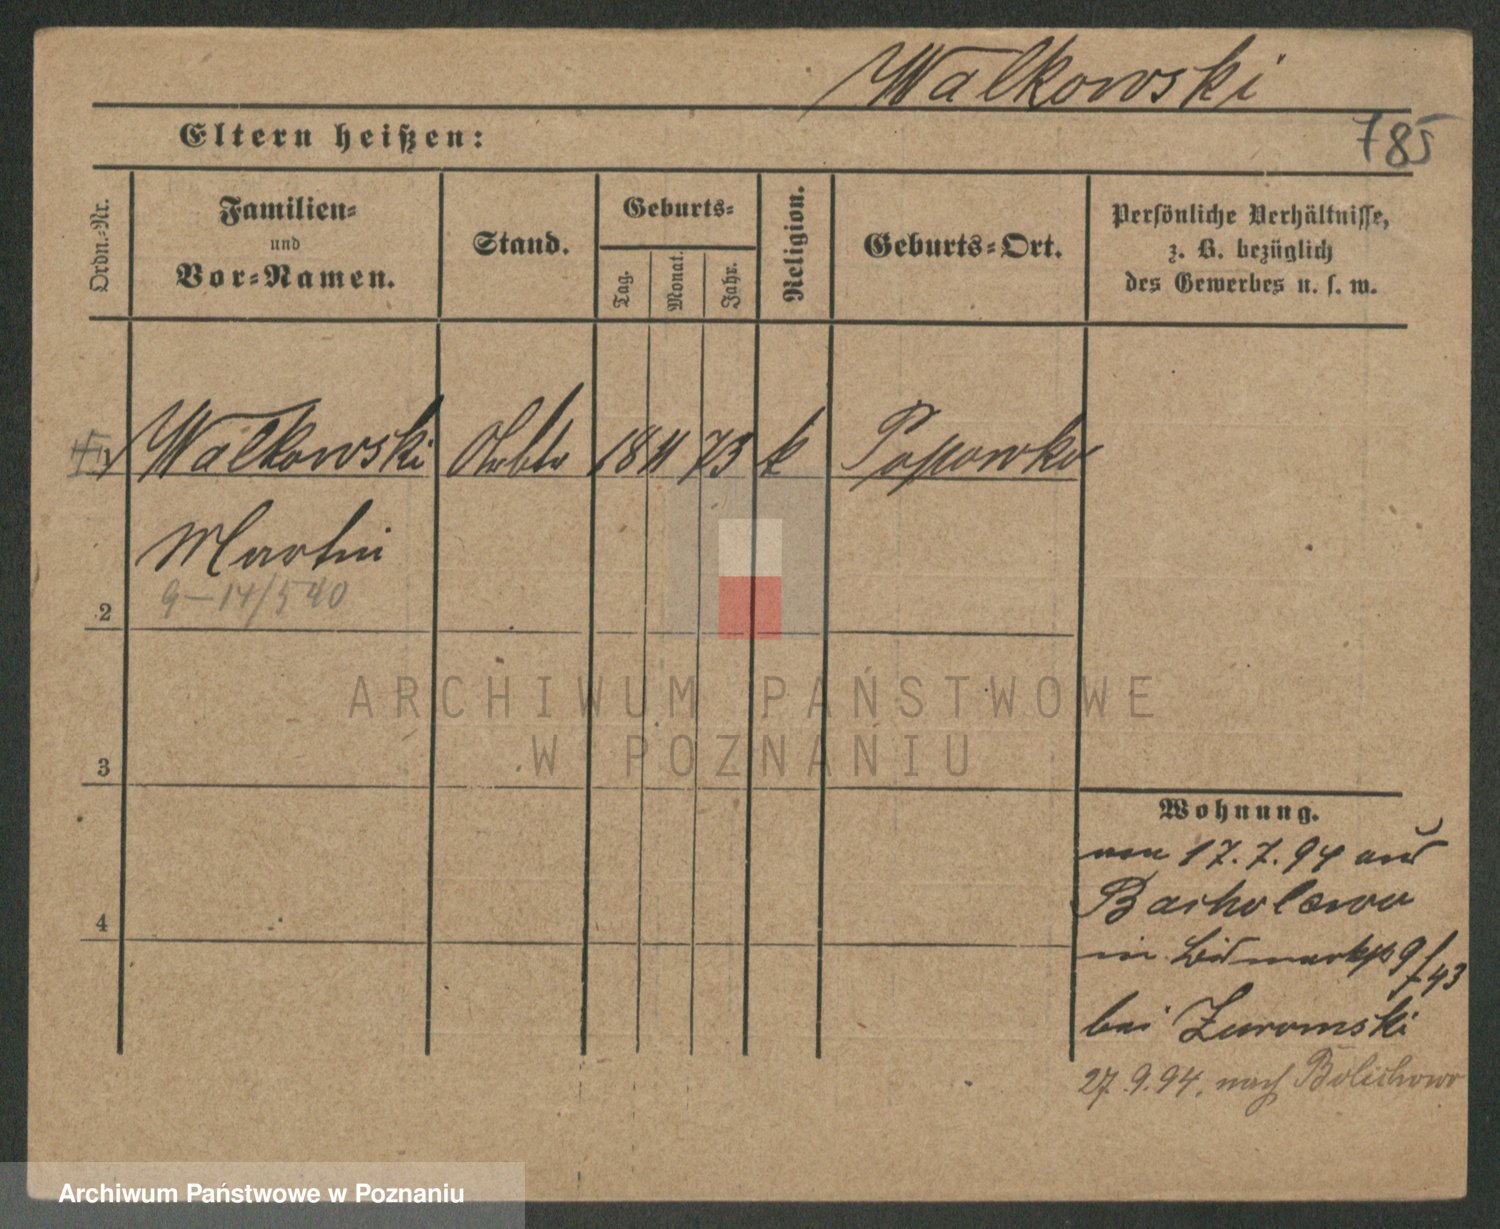 Walkowski
785
Eltern heißen:
Ordn.-Nr.
Familien-
und
Vor-Namen.
Stand.
Geburts-
Tag.
Monat.
Jahr.
Religion.
Geburts-Ort.
Persönliche Verhältnisse,
z. B. bezüglich
des Gewerbes u. s. w.
1 Walkowski Arbtr 18 11 73 k Popowko
Martin
9-14/5 40
2
ARCHIWUM PAŃSTWOWE
W POZNANIU
3
Wohnung.
von 17. 7. 94 aus
4
in 9/43
bei Zuromski
27. 9. 94. nach
Archiwum Państwowe w Poznaniu